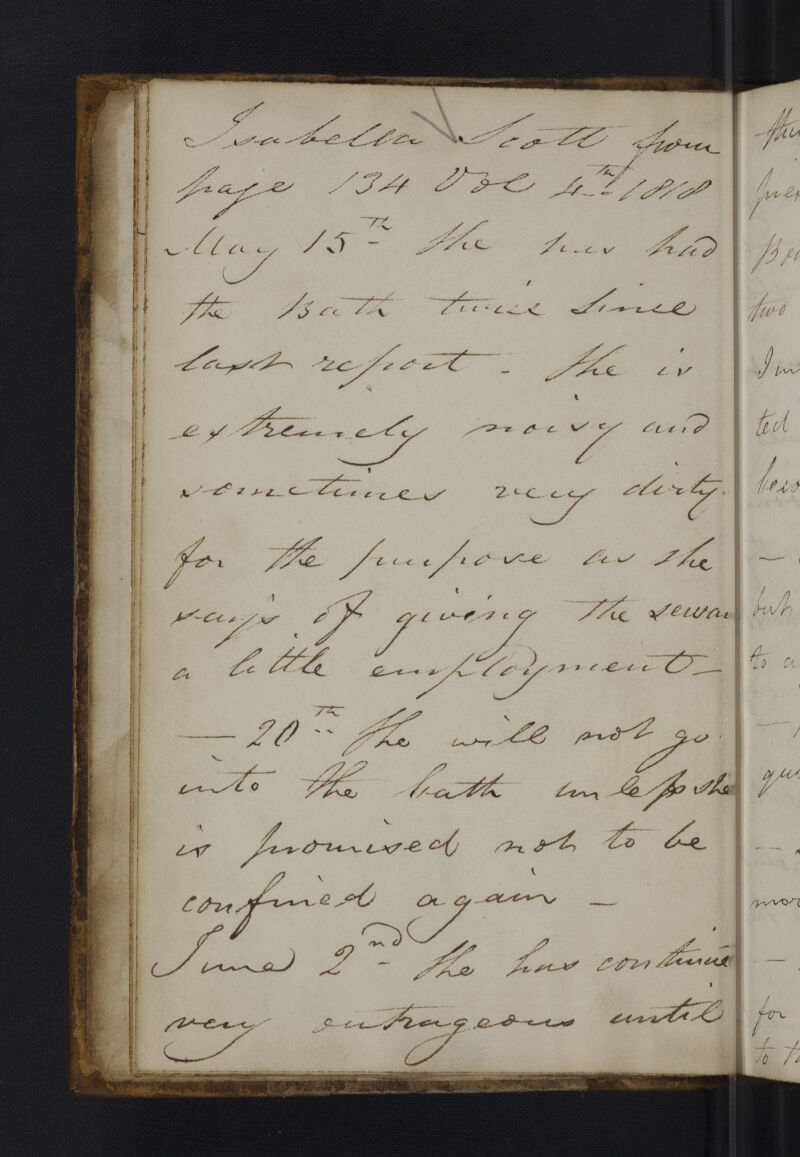 Isabella Scott from
page 134 Vol 4th 1818
May 15th She has had
the Bath twice since
last report - She is
extremely noisy and
sometimes very dirty
for the purpose as she
says of giving the
a little employment -
— 20th She will not go
into the bath unless she
is promised not to be
confined again -
June 2nd She has continue
very outrageous until
two
ted
but
to a
for